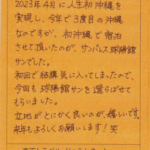 2023年4月に人生初沖縄を
実現し、今年で3度目の沖縄
なのですが、初沖縄で宿泊
させて頂いたのが、サンパレス球陽館
サンでした。
初回で結構気に入ってしまったので、
今回も球陽館サンを選らばせて
もらいました。
立地がとにかく良いのが嬉しいです
来年もよろしくお願います!笑